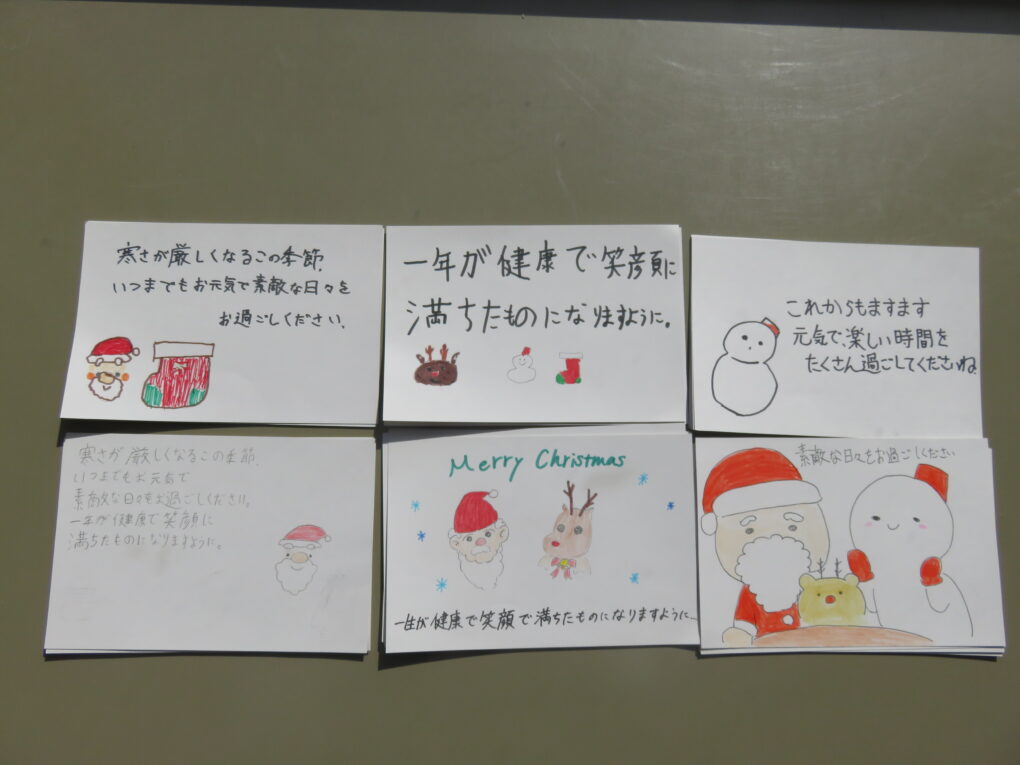 寒さが厳しくなるこの季節、
いつまでもお元気で素敵な日々を
お過ごしください、
一年が健康で笑顔に
満ちたものになりますように。
これからもますます
元気で、楽しい時間を
たくさん過ごしてくださいね
寒さが厳しくなるこの季節、
いつまでもお元気で
素敵な日々をお過ごしください。
一年が健康で笑顔に
満ちたものになりますように。
Merry Christmas
一年が健康で笑顔で満ちたものになりますように…
素敵な日々をお過ごしください